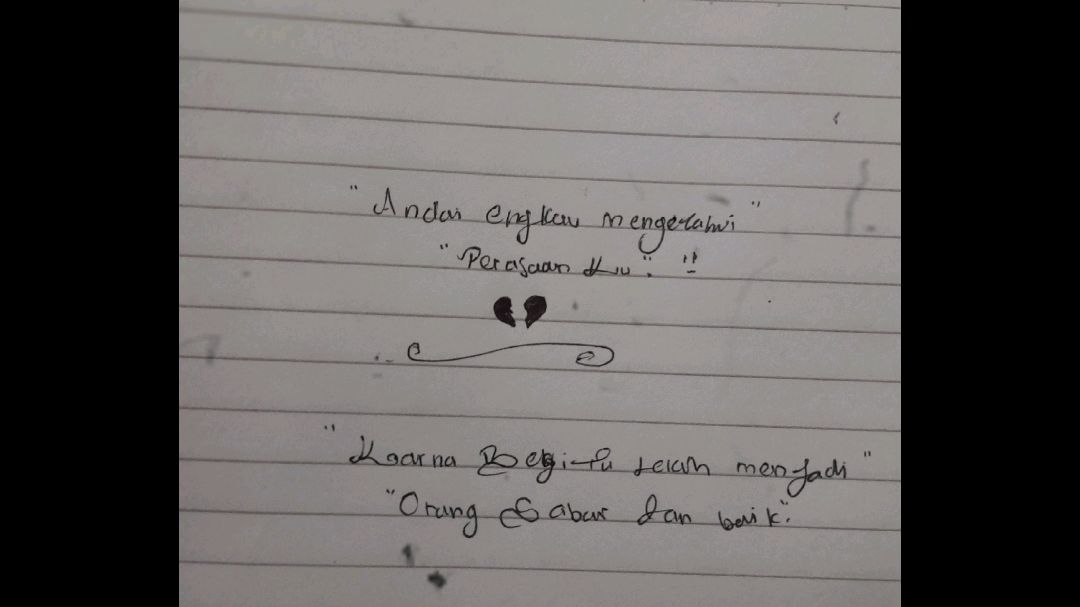 "Andai engkau mengetahui"
"Perasaan ku". !!
"Kaarna Begitu lelah menjadi"
"Orang Sabar dan baik".